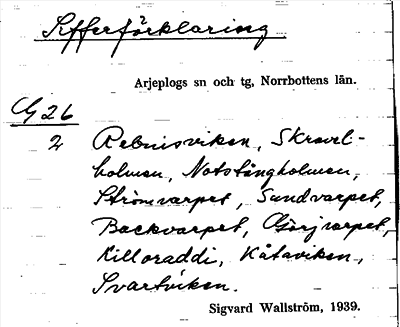 Sifferförklaring
Arjeplogs sn och tg, Norrbottens län.
G 26
2 Rebnisviken, Skravel-
holmen, Notstångholmen,
Strömvarpet, Sundvarpet,
Backvarpet, Görjvarpet,
Killoraddi, Kåtaviken,
Svartviken.
Sigvard Wallström, 1939.